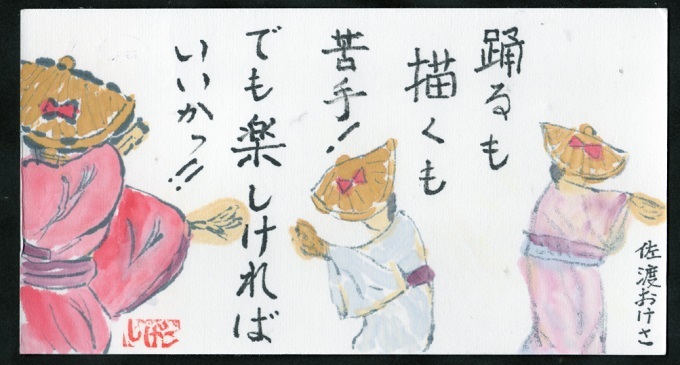 踊るも
描くも
苦手!
でも楽しければ
いいかっ!!
佐渡おけさ
しげこ